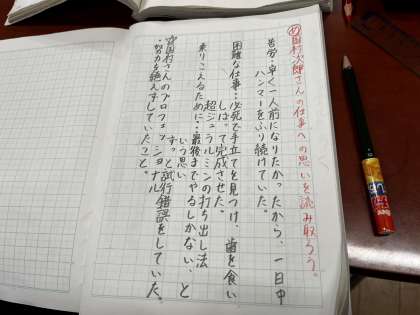 め国村次郎さんの仕事への思いを読み取ろう。
苦労・早く一人前になりたかったから、一日中
ハンマーをふり続けていた。
困難な仕事…必死で手立てを見つけ、歯を食い
しばって完成させた。
超ジュラルミンの打ち出し法
乗りこえるために…最後までやるしかない、と
いう思い
ずっと試行錯誤をしていた。
国村さんのプロフェッショナル
・努力を絶えずしていたこと。